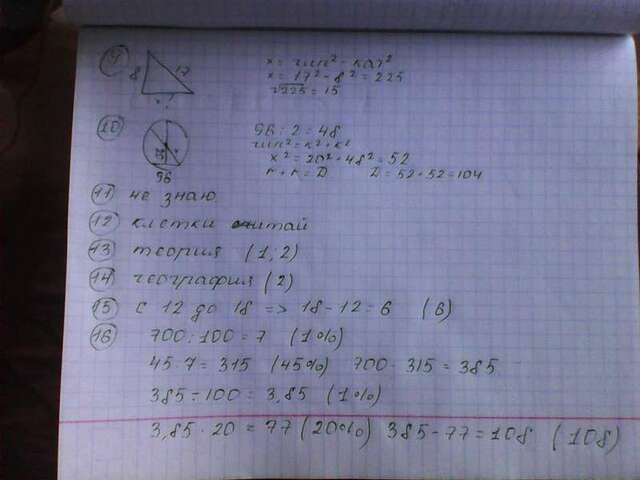 9
8 17
x - ?
x = гип² - кат²
x = 17² - 8² = 225
√225 = 15
10
96
96 : 2 = 48
гип² = к² + к²
x² = 20² + 48² = 52
r + r = D D = 52 + 52 = 104
11 не знаю.
12 клетки считай
13 теория (1; 2)
14 география (2)
15 с 12 до 18 => 18 - 12 = 6 (6)
16 700 : 100 = 7 (1%)
45 · 7 = 315 (45%) 700 - 315 = 385
385 ÷ 100 = 3,85 (1%)
3,85 · 20 = 77 (20%) 385 - 77 = 108 (108)